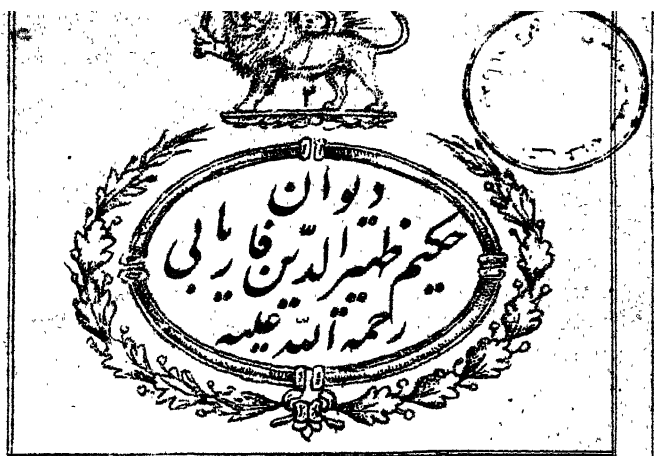 ۲
دیوان
حکیم ظهیرالدّین فاریابی
رحمة اللّه علیه